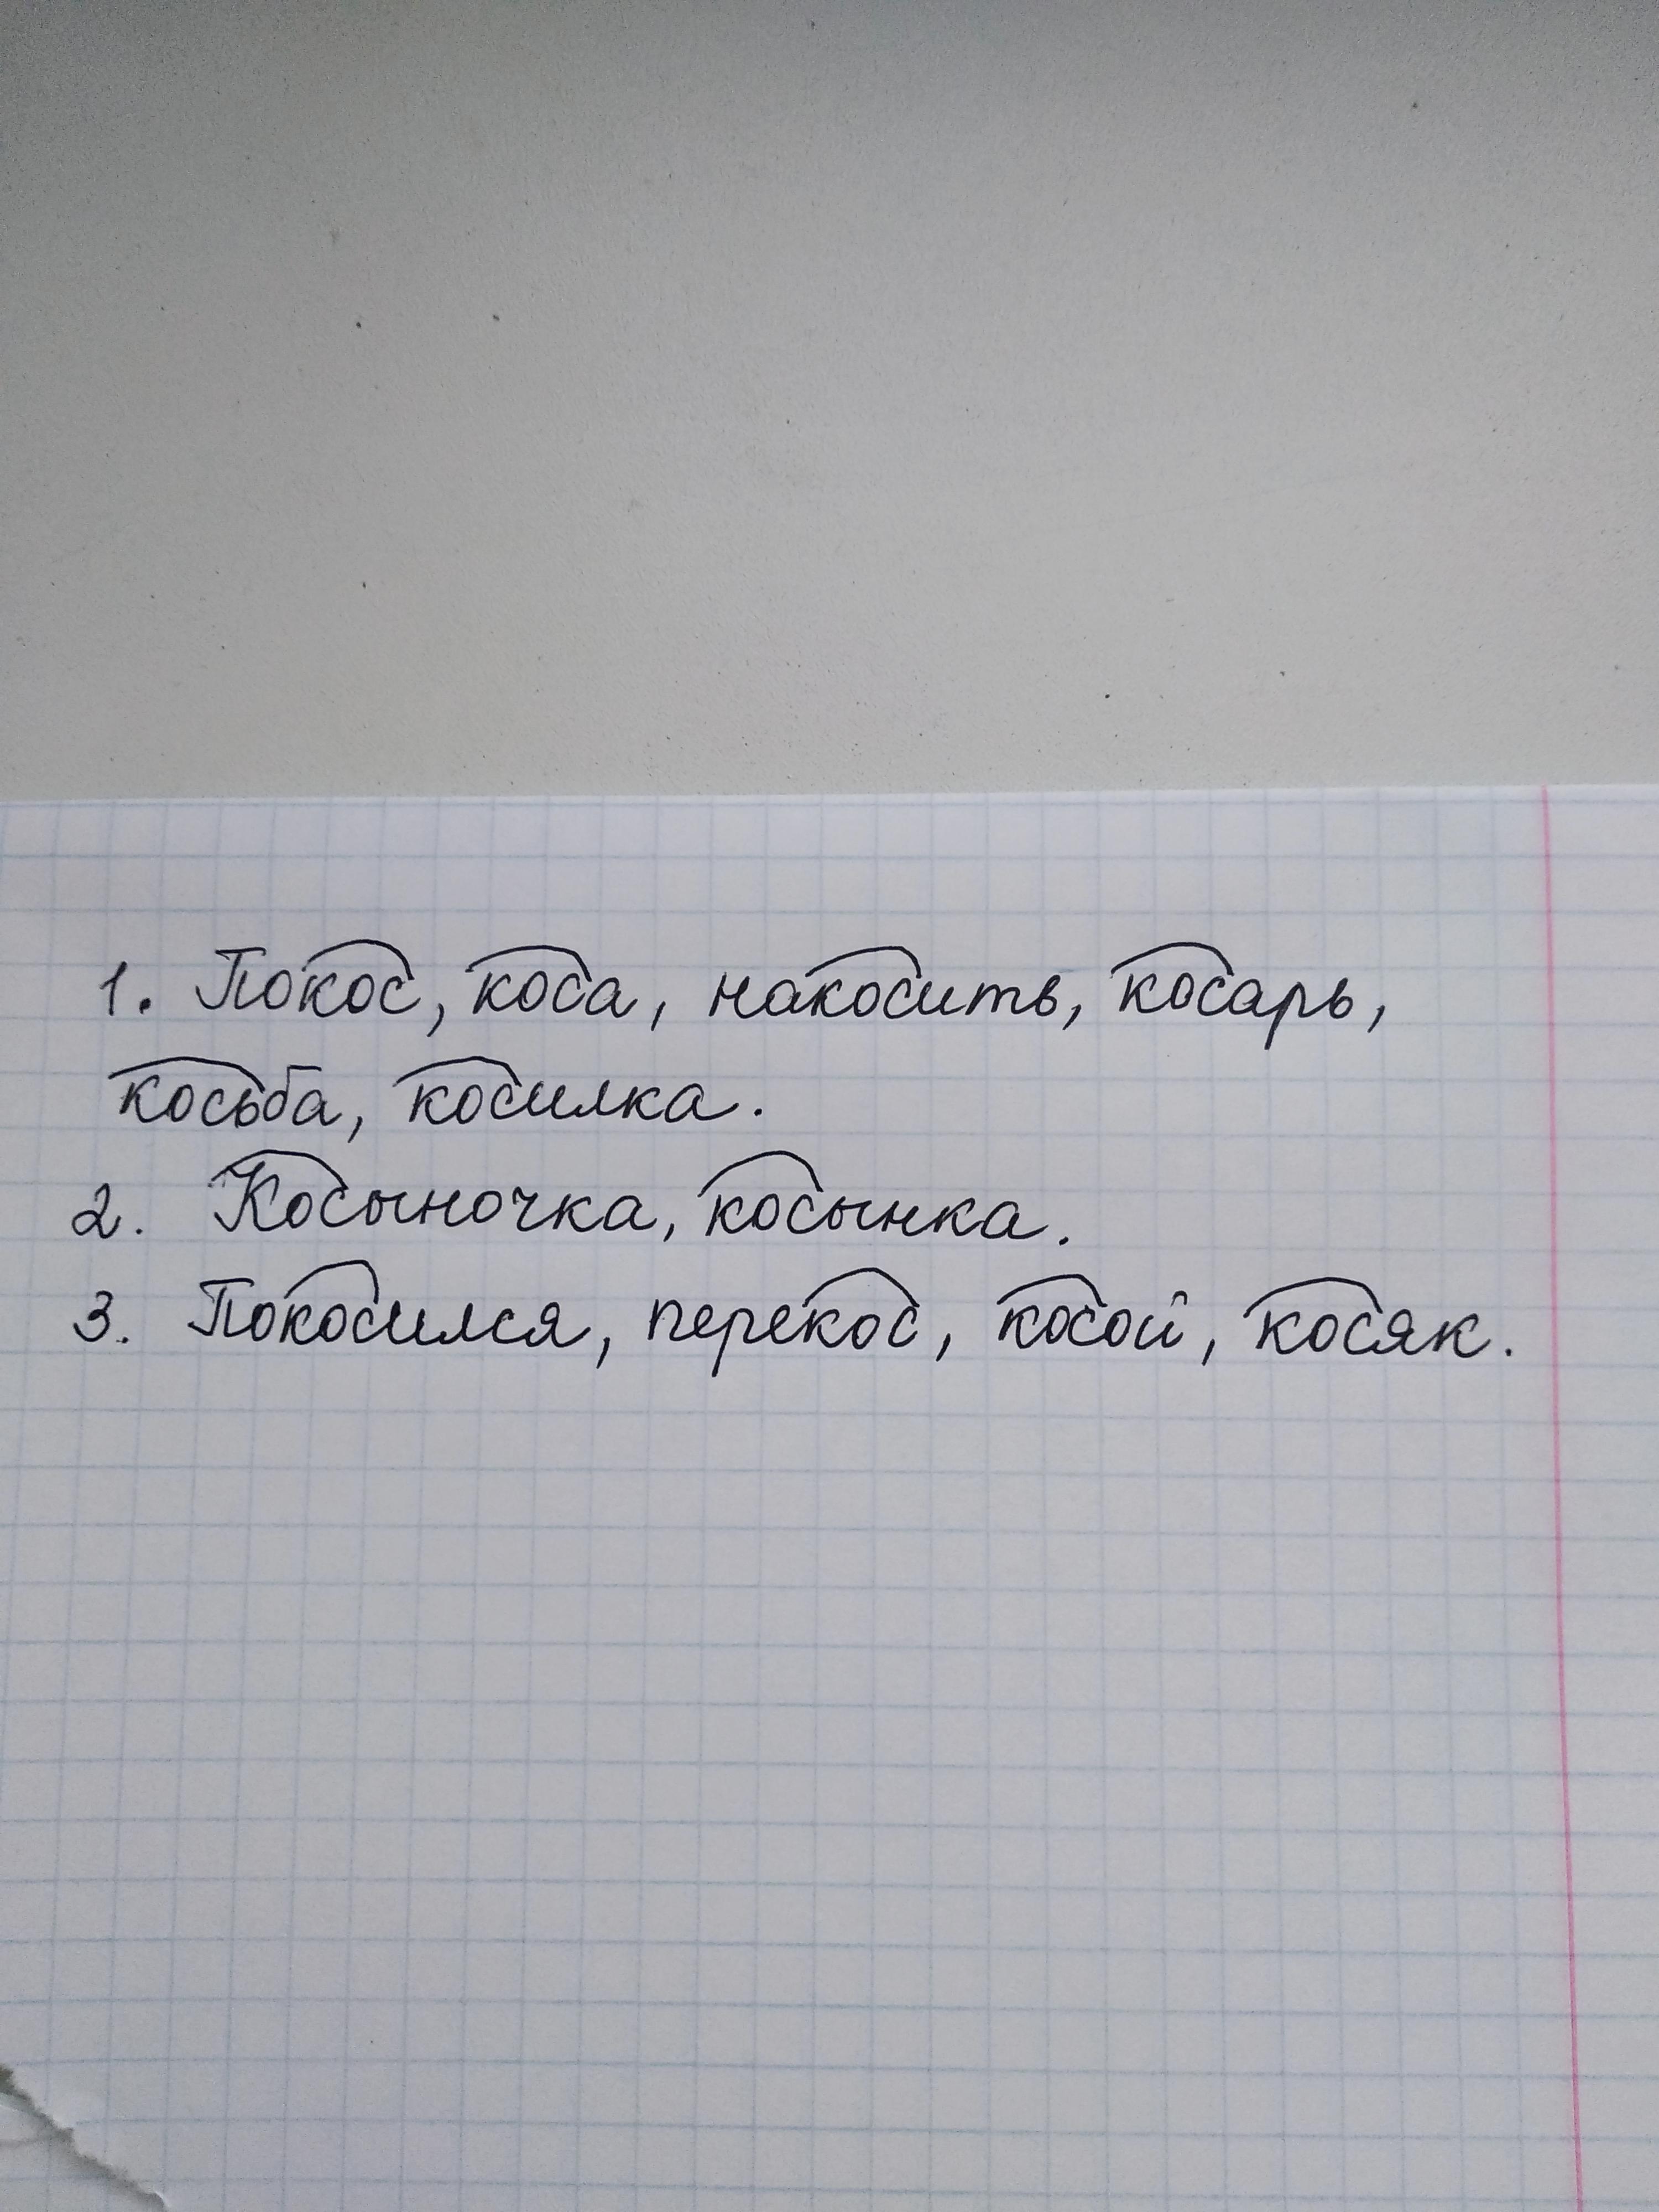 1. Покос, коса, накосить, косарь,
косьба, косилка.
2. Косыночка, косынка.
3. Покосился, перекос, косой, косяк.